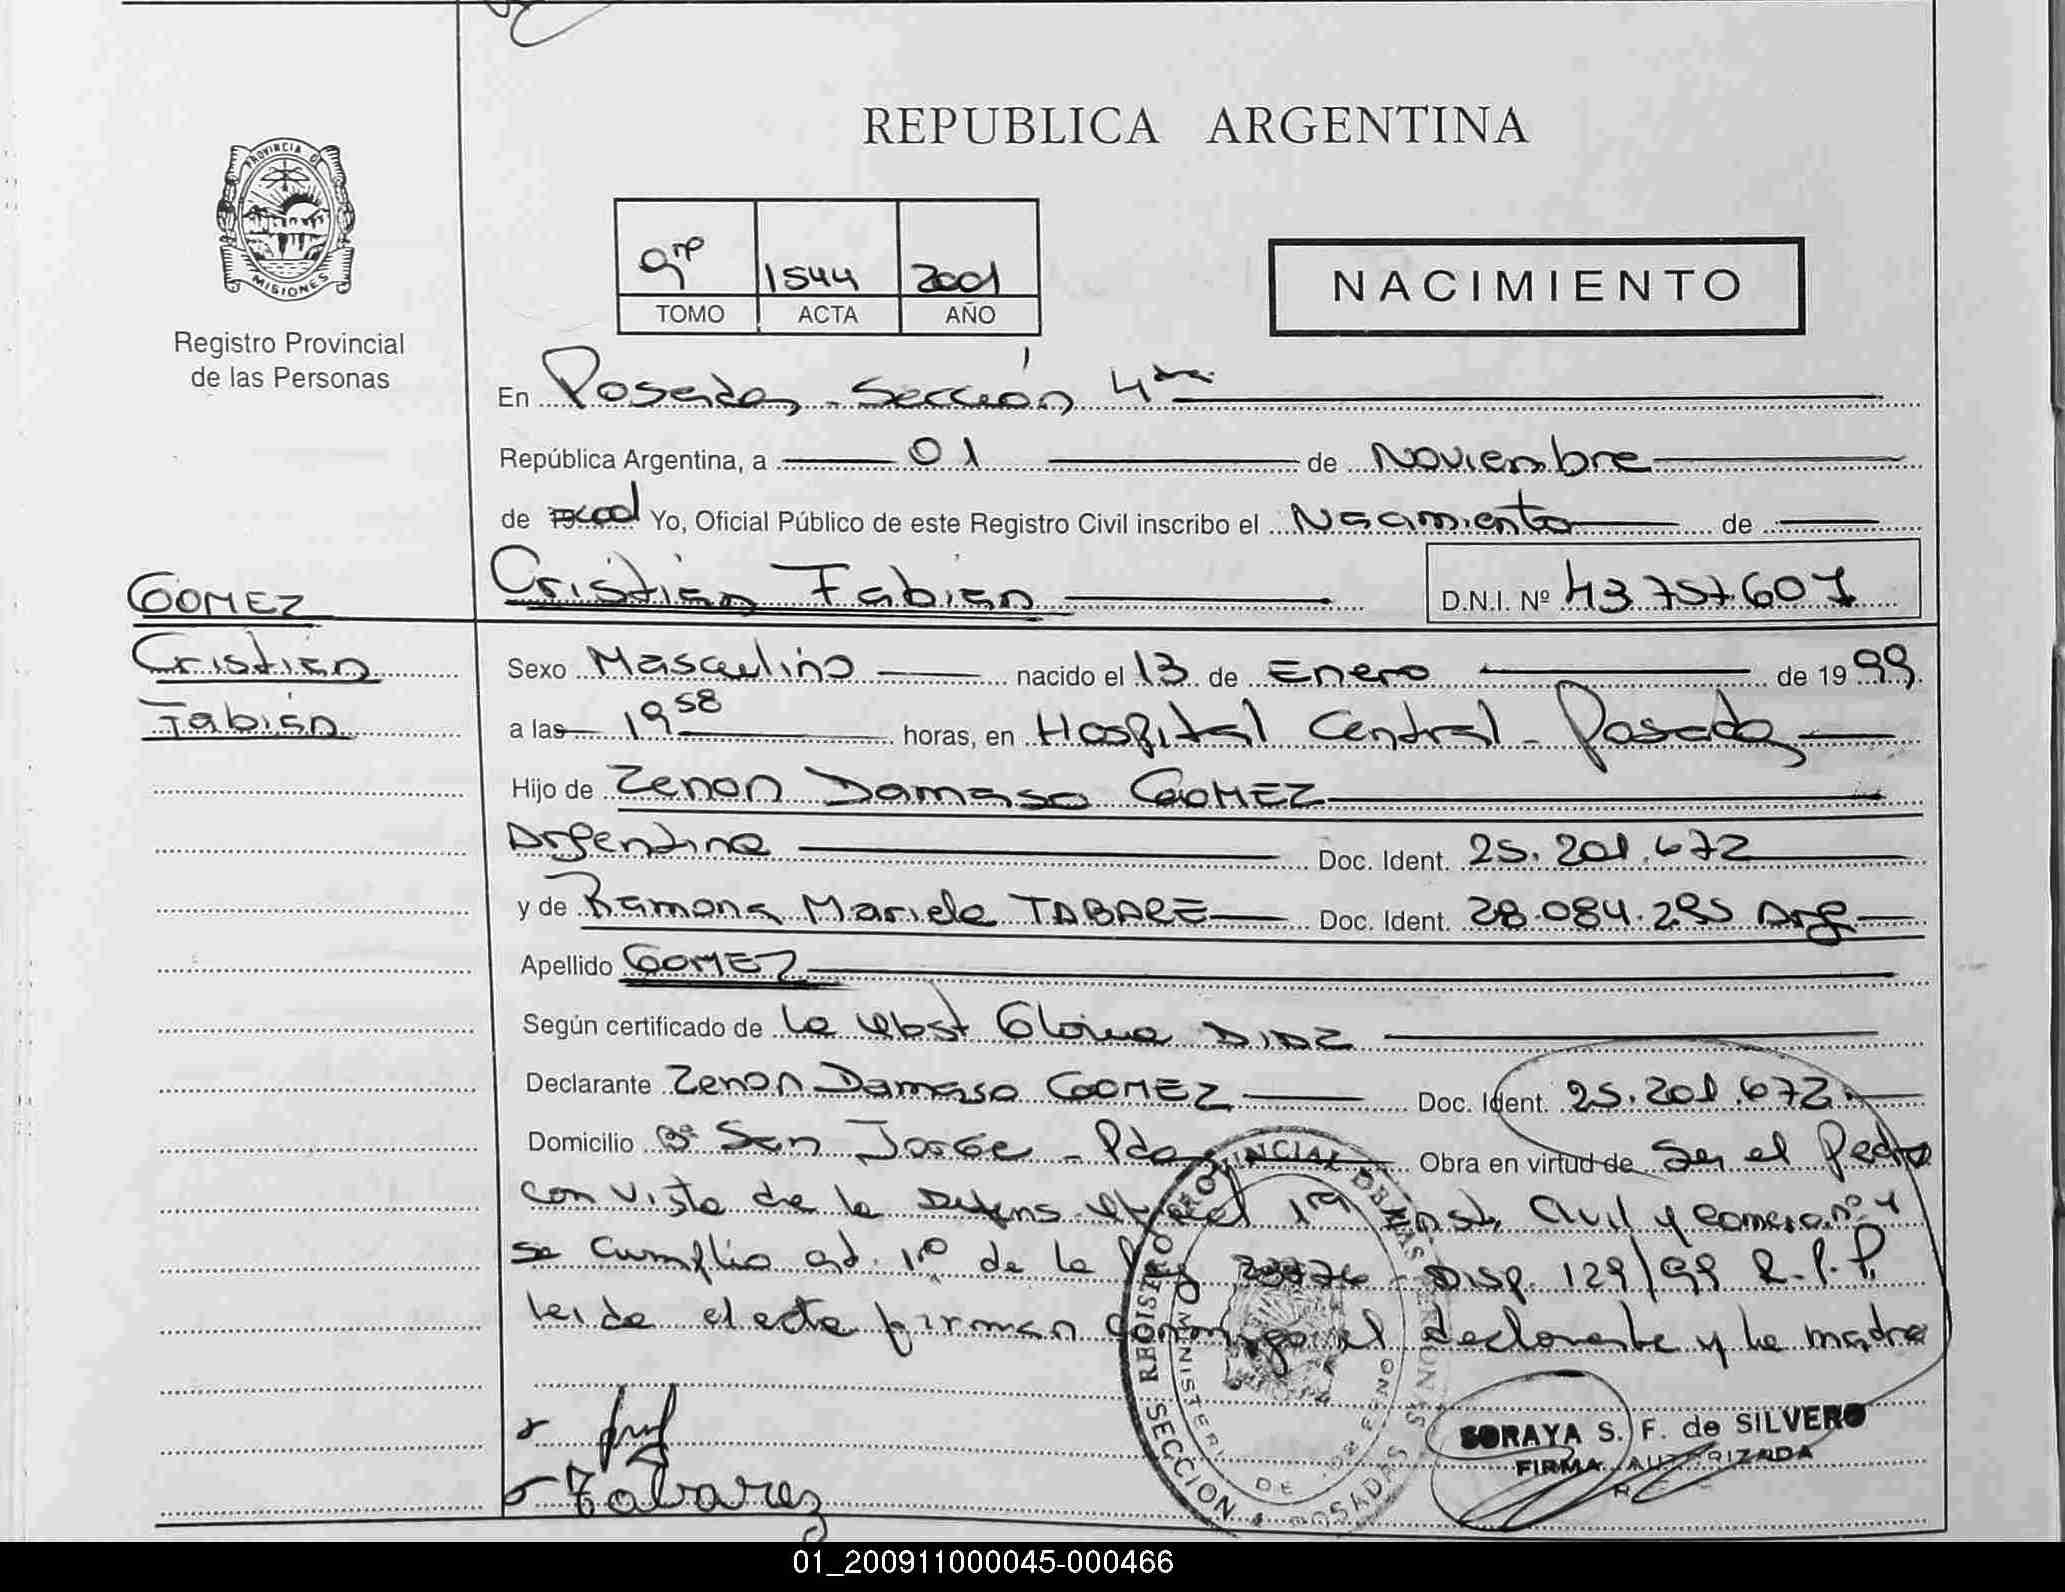 REPUBLICA ARGENTINA
PROVINCIA DE
MISIONES
Registro Provincial
de las Personas
9no 1544 2001
TOMO ACTA AÑO
NACIMIENTO
En Posadas - Sección 4ta
República Argentina, a 01 de Noviembre
de 2001 Yo, Oficial Público de este Registro Civil inscribo el Nacimiento de
GOMEZ
Cristian
Fabián
Cristián Fabián D.N.I. Nº 43757607
Sexo Masculino nacido el 13 de Enero de 1999
a las 19 58 horas, en Hospital Central - Posadas
Hijo de Zenon Damaso GOMEZ
Argentino Doc. Ident. 25.201.672
y de Ramona Mariela TABARE Doc. Ident. 28.084.295 Arg
Apellido GOMEZ
Según certificado de la Obst Gloria DIAZ
Declarante Zenon Damaso GOMEZ Doc. Ident. 25.201.672
Domicilio Bº San Jorge - Pdas Obra en virtud de Ser el Padre
con vista de la Defens 1ra Inst. Civil y Comerc. nº 4
se cumplio art. 1º de la Ley - Disp. 129/99 R.P.P.
leida el acta firman conmigo el declarante y la madre
REGISTRO PROVINCIAL DE LAS PERSONAS
MINISTERIO DE GOBIERNO
SECCION 4 POSADAS
SORAYA S. F. de SILVERO
FIRMA AUTORIZADA
Tabarez
01_200911000045-000466